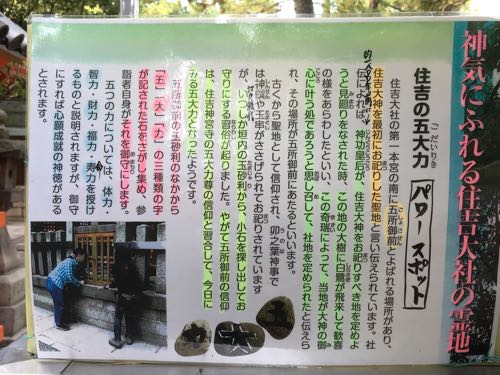 神気にふれる住吉大社の霊地
住吉の五大力
パワースポット
住吉大社の第一本宮の南に五所御前とよばれる場所があり、
住吉大神を最初にお祀りした聖地と言い伝えられています。社
伝によれば、神功皇后が、住吉大神をお祀りすべき地を定めよ
うと見廻りをなされた時、この地の大樹に白鷺が飛来して歓喜
の様をあらわしたといい、この奇瑞によって、当地が大神の御
心に叶う処であろうと思し召して、社地を定められたと伝えら
れ、その場所が五所御前にあたるといいます。
古くから聖地として信仰され、卯之葉神事で
は神饌や玉串がささげられてお祀りされています
が、いつしか垣内の玉砂利から、小石を探し出してお
守りにする習俗が起りました。やがて五所御前の信仰
は、住吉神宮寺の五大力尊の信仰と習合して、今日に
みる五大力となったようです。
五所御前の玉砂利のなかから
「五」「大」「力」の三種類の字
が記された石をさがし集め、参
詣者自身がそれを御守にします。
五つの力については、体力・
智力・財力・福力・寿力を授け
るものと説明されますが、御守
にすれば心願成就の神徳がある
とされます。